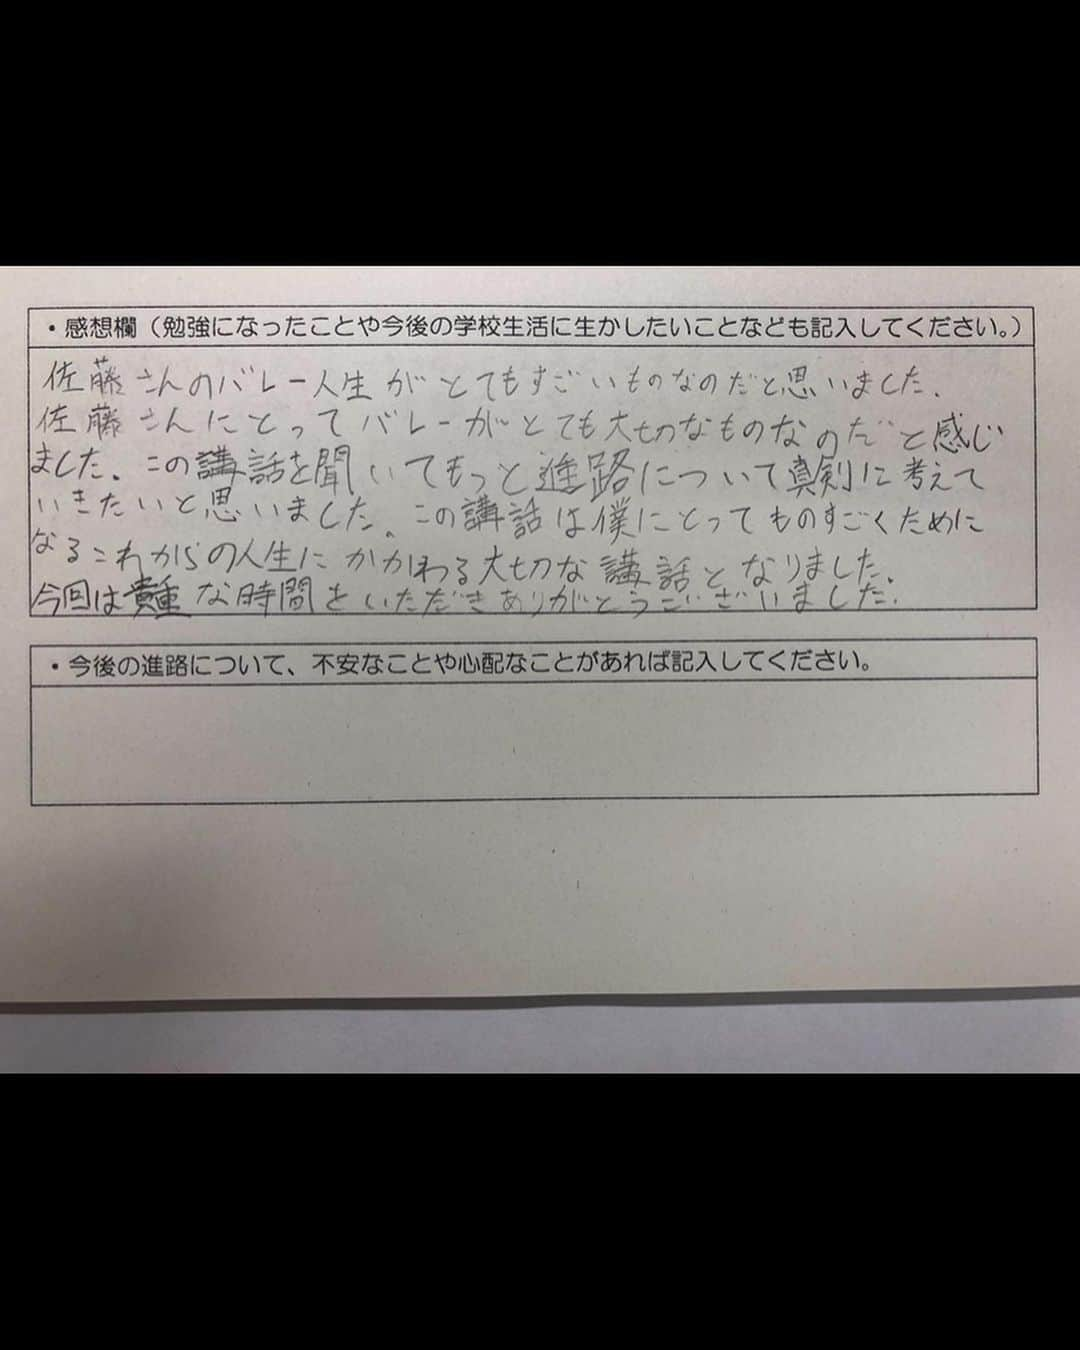 ・感想欄（勉強になったことや今後の学校生活に生かしたいことなども記入してください。）
佐藤さんのバレー人生がとてもすごいものなのだと思いました。
佐藤さんにとってバレーがとても大切なものなのだと感じ
ました。この講話を聞いてもっと進路について真剣に考えて
いきたいと思いました。この講話は僕にとってものすごくために
なるこれからの人生にかかわる大切な講話となりました。
今回は貴重な時間をいただきありがとうございました。
・今後の進路について、不安なことや心配なことがあれば記入してください。